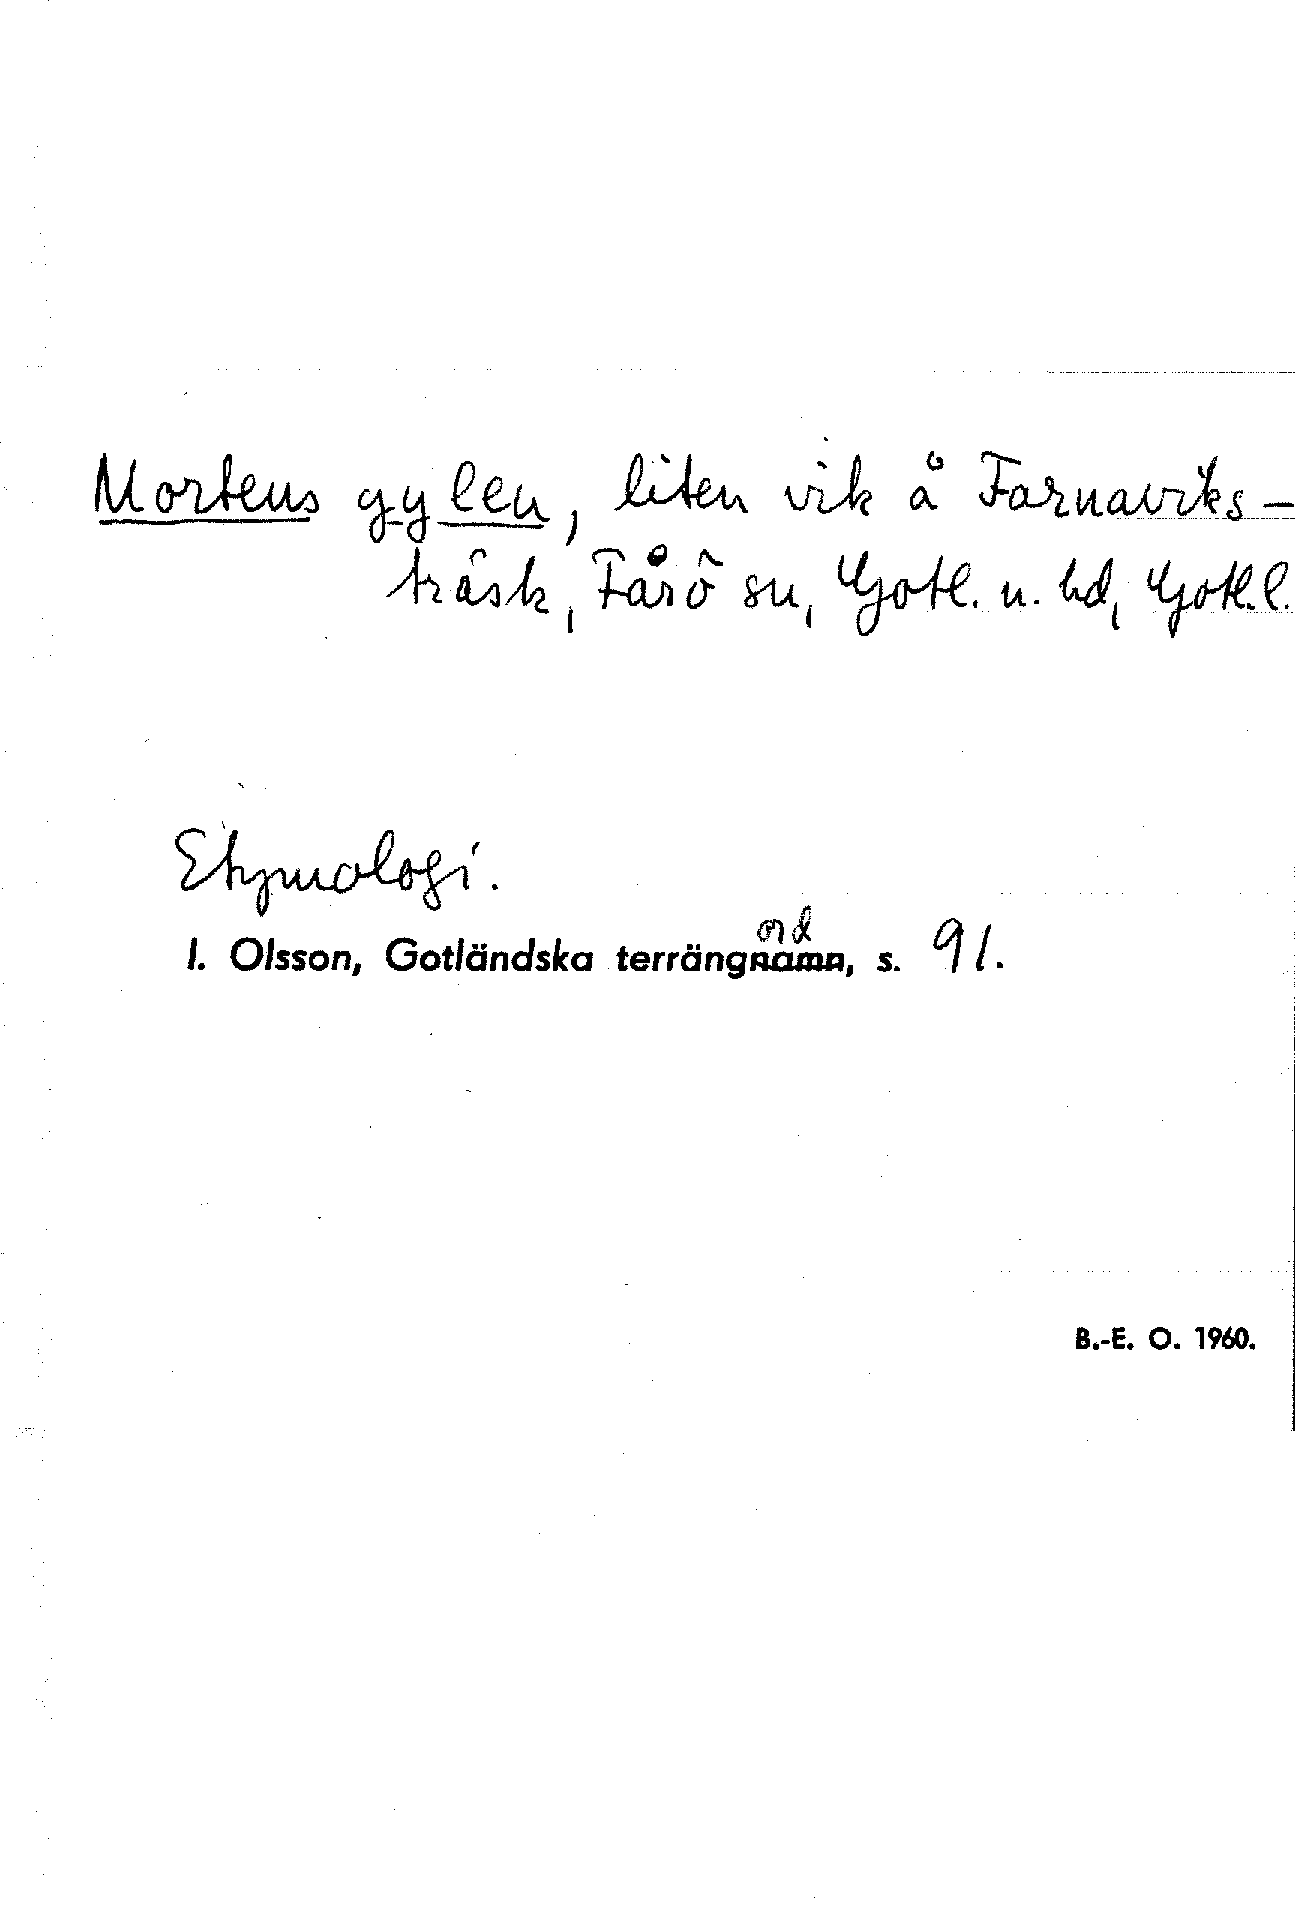 Mortens gylen, liten vik å Farnaviks-
träsk, Fårö sn, Gotl. n. hd, Gotl. l.
Etymologi.
ord
I. Olsson, Gotländska terrängnamn, s. 91.
B.-E. O. 1960.